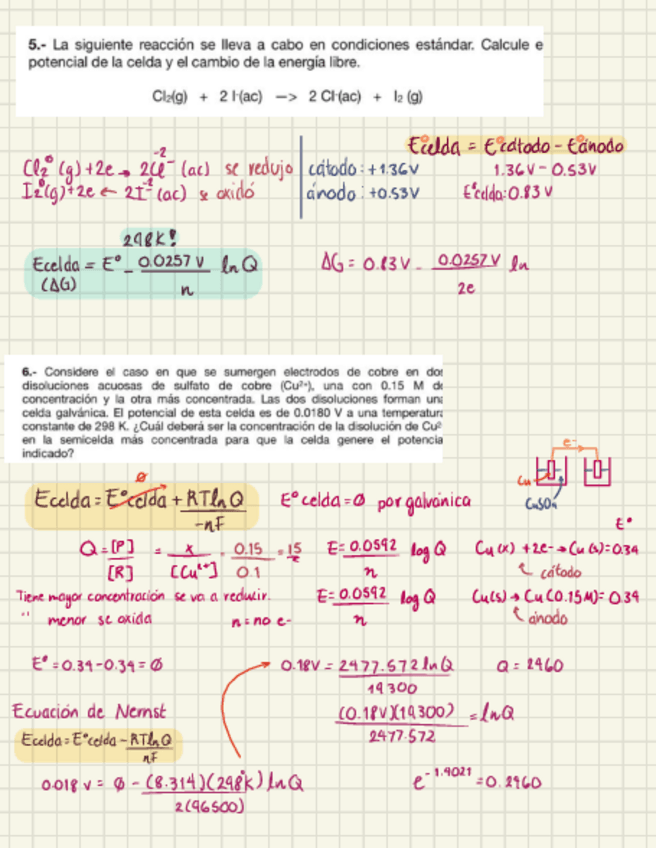 5.- La siguiente reacción se lleva a cabo en condiciones estándar. Calcule e
potencial de la celda y el cambio de la energía libre.
Cl₂(g) + 2 I⁻(ac) —> 2 Cl⁻(ac) + I₂ (g)
Cl₂⁰ (g) + 2e → 2Cl⁻ (ac) se redujo
-2
I₂⁰(g) + 2e ← 2I⁻ (ac) se oxidó
cátodo: +1.36V
ánodo: +0.53V
E°celda = E°cátodo - E°ánodo
1.36V - 0.53V
E°celda: 0.83 V
298K!
Ecelda = E° - 0.0257 V / n ln Q
(ΔG)
ΔG = 0.83V - 0.0257V / 2e ln
6.- Considere el caso en que se sumergen electrodos de cobre en dos
disoluciones acuosas de sulfato de cobre (Cu²⁺), una con 0.15 M de
concentración y la otra más concentrada. Las dos disoluciones forman una
celda galvánica. El potencial de esta celda es de 0.0180 V a una temperatura
constante de 298 K. ¿Cuál deberá ser la concentración de la disolución de Cu²
en la semicelda más concentrada para que la celda genere el potencia
indicado?
e-
Cu
CuSO₄
Ø
Ecelda = E°celda + RTlnQ / -nF
E°celda = Ø por galvánica
E°
Q = [P] / [R] = x / [Cu²⁺] = 0.15 / 0.1 = 15
E = 0.0592 / n log Q
Cu(x) + 2e- → Cu(s) = 0.34
cátodo
Tiene mayor concentración se va a reducir.
" menor se oxida
n = no e-
E = 0.0592 / n log Q
Cu(s) → Cu(0.15M) = 0.34
ánodo
E° = 0.34 - 0.34 = Ø
0.18V = 2477.572 ln Q / 19300
Q = 2960
Ecuación de Nernst
(0.18V)(19300) / 2477.572 = lnQ
Ecelda = E°celda - RTlnQ / nF
0.018 v = Ø - (8.314)(298°k) lnQ / 2(96500)
e^-1.4021 = 0.2460